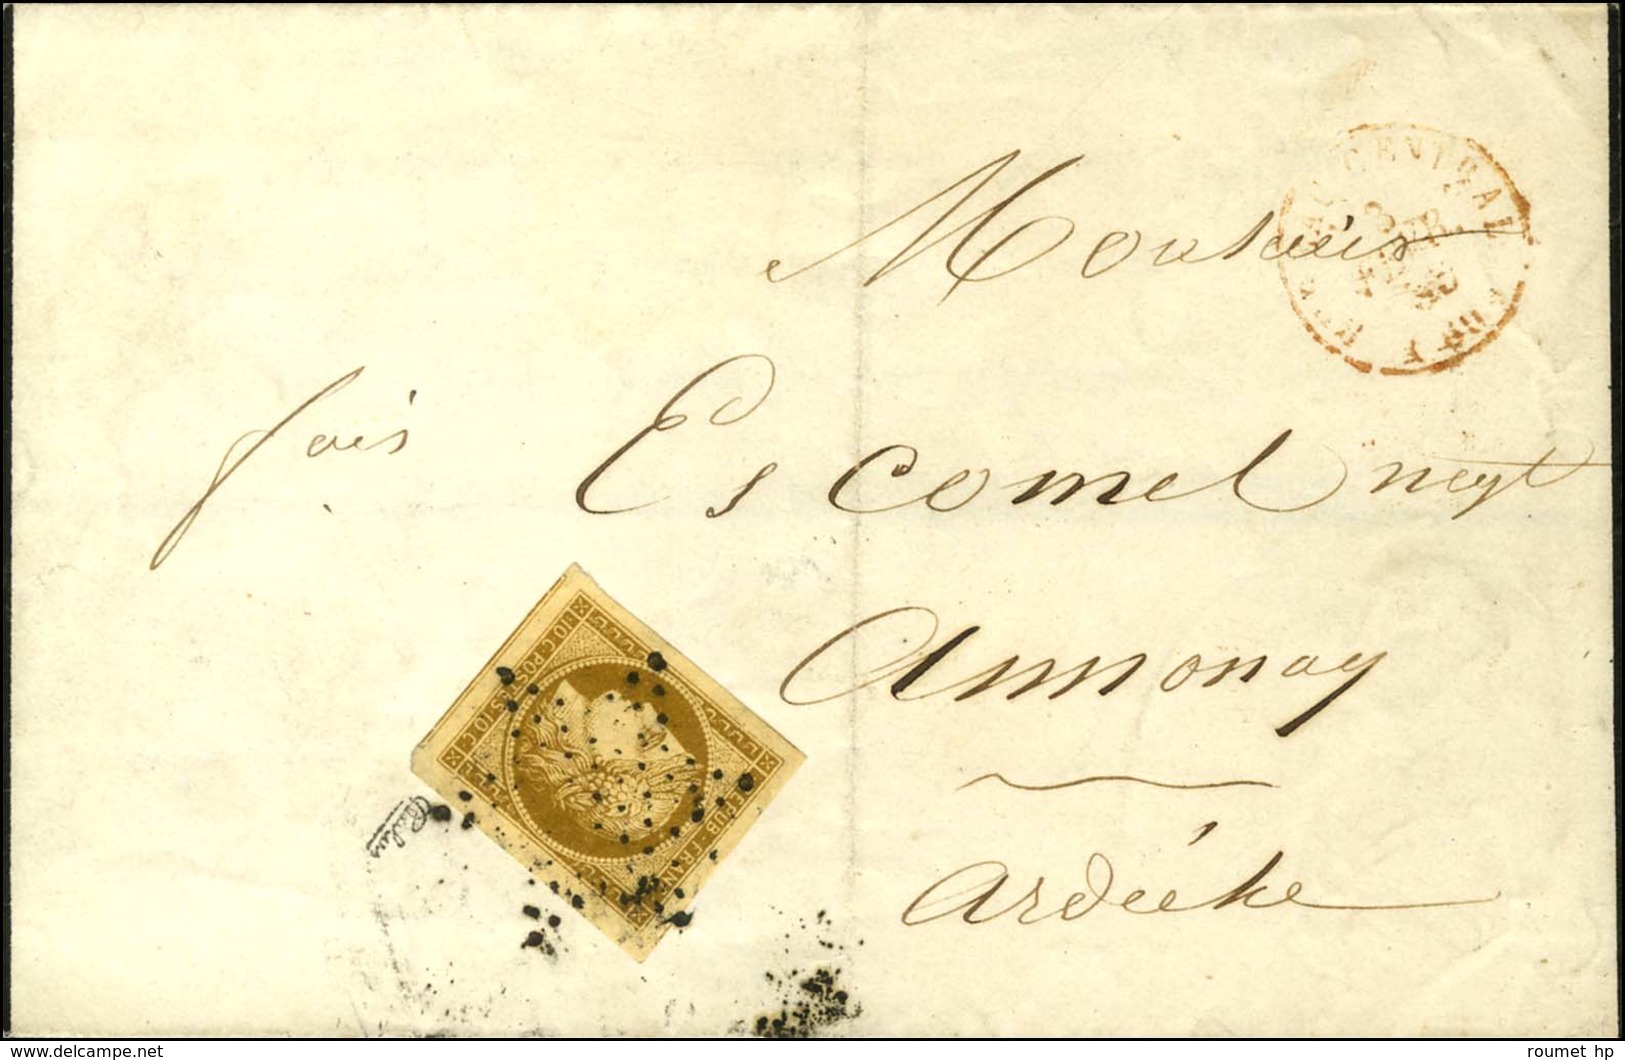 BUREAU CENTRAL
Monsieur
fois
Escomel negt
Annonay
Ardèche
10 C. POSTES 10 C.
REPUB. FRANC.
www.delcampe.net
roumet hp